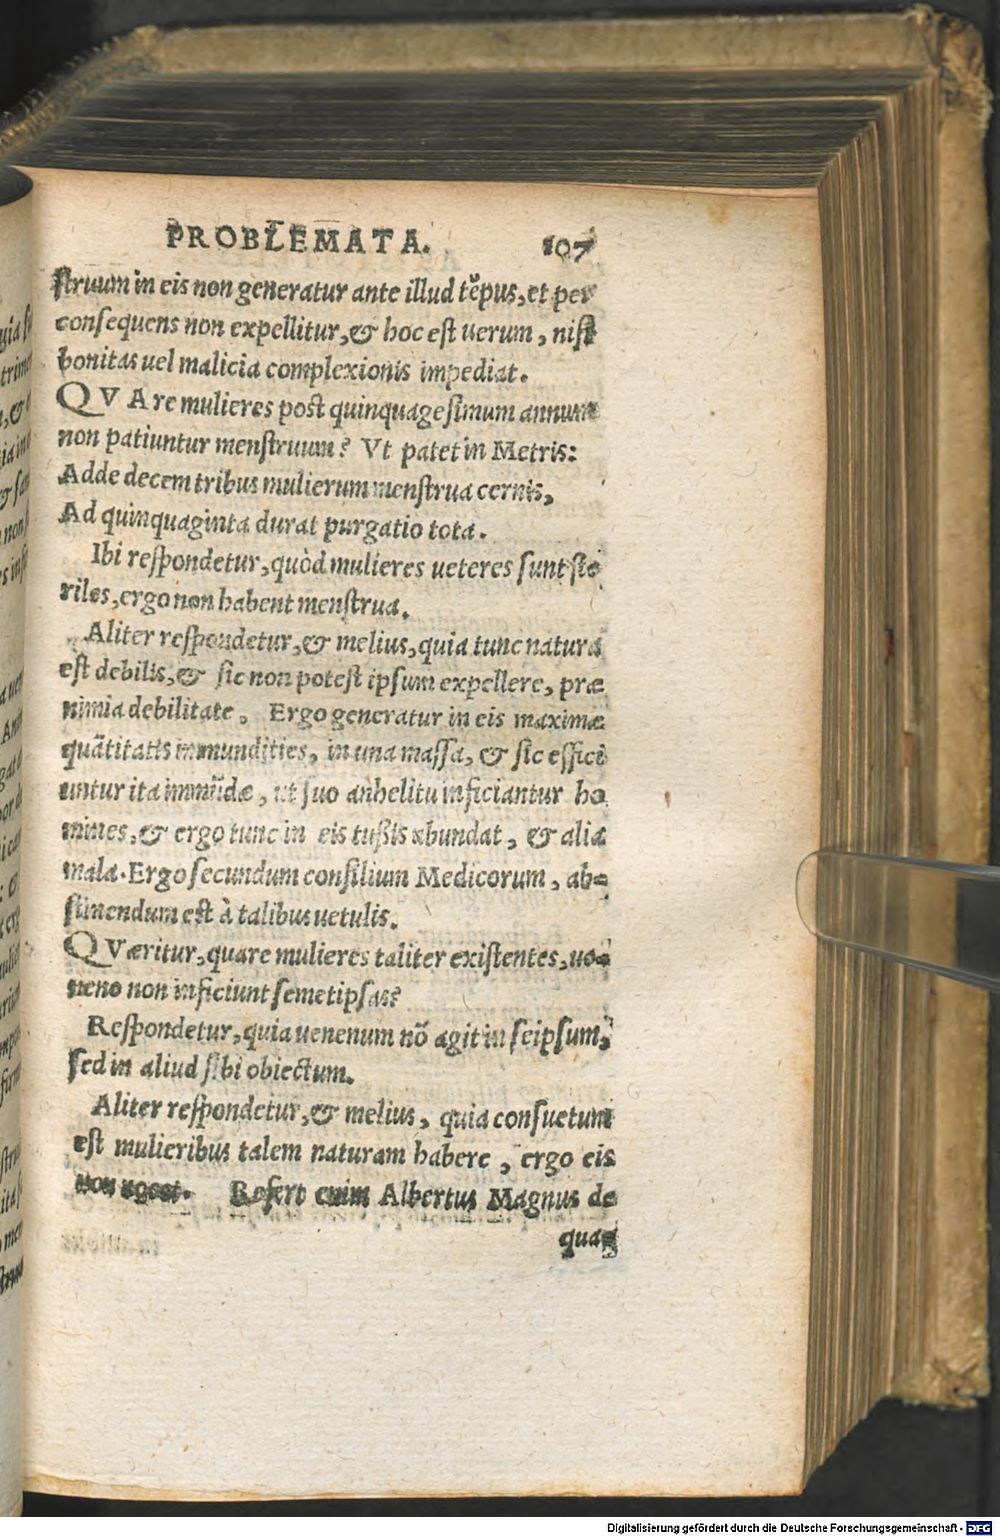 PROBLEMATA. 107
struum in eis non generatur ante illud tẽpus, et per
consequens non expellitur, & hoc est uerum, nisi
bonitas uel malicia complexionis impediat.
QVAre mulieres post quinquagesimum annum
non patiuntur menstruum? Vt patet in Metris:
Adde decem tribus mulierum menstrua cernis,
Ad quinquaginta durat purgatio tota.
Ibi respondetur, quòd mulieres ueteres sunt ste
riles, ergo non habent menstrua.
Aliter respondetur, & melius, quia tunc natura
est debilis, & sic non potest ipsum expellere, præ
nimia debilitate. Ergo generatur in eis maximæ
quãtitatis immundities, in una massa, & sic effici
untur ita immũdæ, ut suo anhelitu inficiantur ho
mines, & ergo tunc in eis tußis abundat, & alia
mala. Ergo secundum consilium Medicorum, ab-
stinendum est à talibus uetulis.
QVæritur, quare mulieres taliter existentes, ue-
neno non inficiunt semetipsas?
Respondetur, quia uenenum nõ agit in seipsum,
sed in aliud sibi obiectum.
Aliter respondetur, & melius, quia consuetum
est mulieribus talem naturam habere, ergo eis
non nocet. Refert enim Albertus Magnus de
qua-
Digitalisierung gefördert durch die Deutsche Forschungsgemeinschaft - DFG